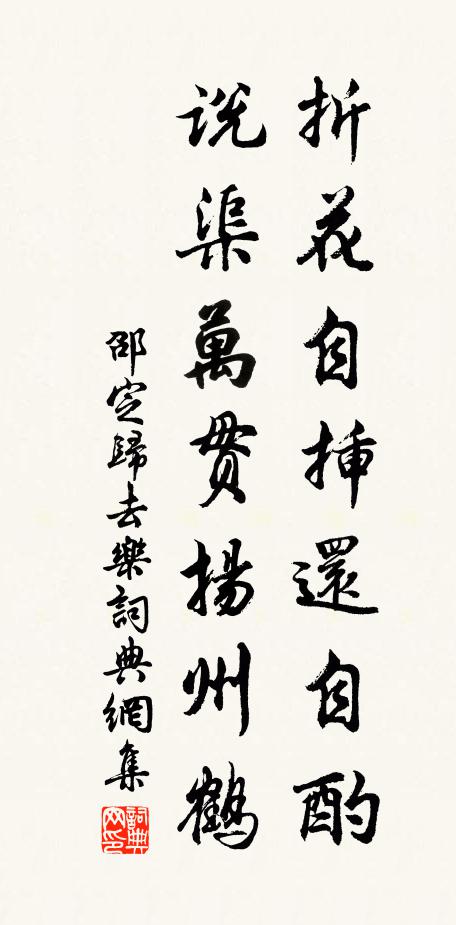 折花自插還自酌
说渠萬貫揚州鶴
邵定歸去樂詞典網集
詞典网印